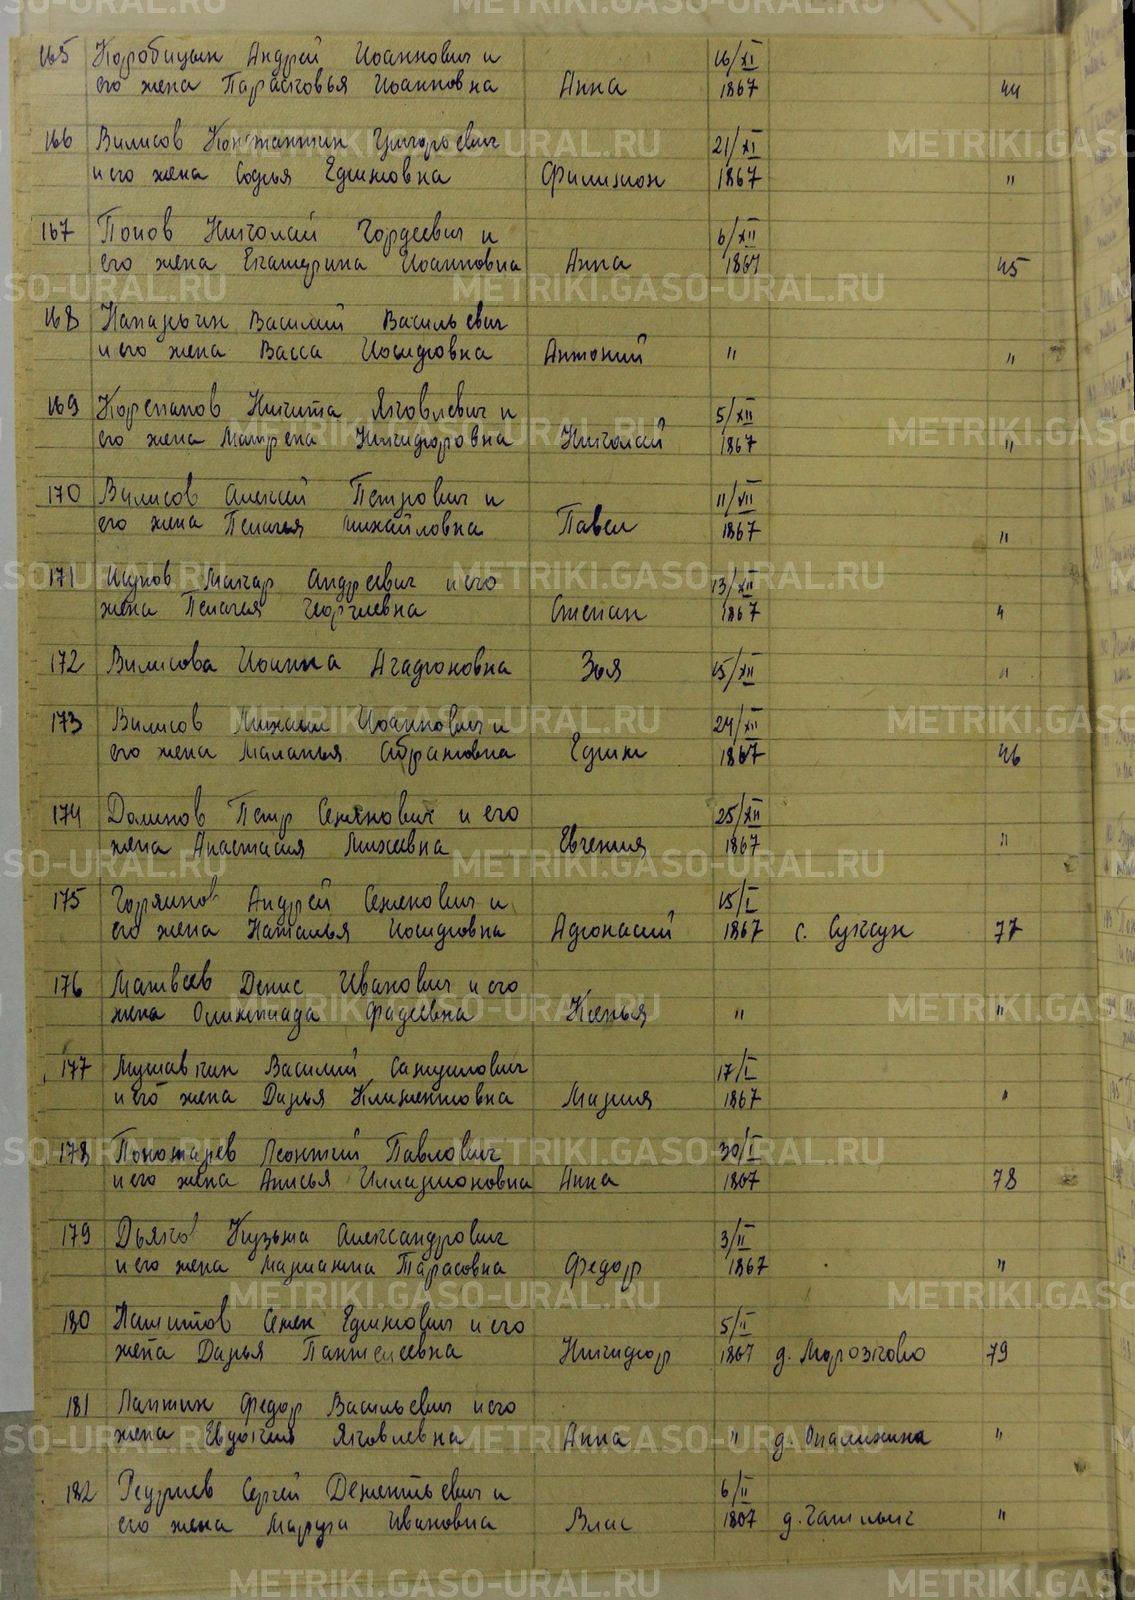 165 Коробицын Андрей Иоаннович и 16/XI
его жена Парасковья Иоанновна Анна 1867 44
166 Вилисов Константин Григорьевич 21/XI
и его жена Софья Ефимовна Филимон 1867 "
167 Попов Николай Гордеевич и 6/XII
его жена Екатерина Иоанновна Анна 1867 45
168 Василий Васильевич
и его жена Васса Иосифовна Антоний " "
169 Корепанов Никита Яковлевич и 5/XII
его жена Матрена Никифоровна Николай 1867 "
170 Вилисов Алексей Петрович и 11/XII
его жена Пелагея Михайловна Павел 1867 "
171 Макар Андреевич и его 13/XII
жена Пелагея Георгиевна Степан 1867 "
172 Вилисова Иоанна Агафоновна Зоя 15/XII "
173 Вилисов Михаил Иоаннович и 24/XII
его жена Маланья Абрамовна Ефим 1867 46
174 Долинов Петр Семенович и его 25/XII
жена Анастасия Михеевна Евгения 1867 "
175 Горяинов Андрей Семенович и 15/I
его жена Наталья Иосифовна Афонасий 1867 с. Суксун 77
176 Матвеев Денис Иванович и его
жена Олимпиада Фадеевна Ксенья " "
177 Василий Самуилович 17/I
и его жена Дарья Климентовна Мария 1867 "
178 Пономарев Леонтий Павлович 30/I
и его жена Анисья Илларионовна Анна 1867 78
179 Дьяков Кузьма Александрович 3/II
и его жена Марианна Тарасовна Федор 1867 "
180 Семен Ефимович и его 5/II
жена Дарья Пантелеевна Никифор 1867 д. Морозково 79
181 Лаптин Федор Васильевич и его
жена Евдокия Яковлевна Анна " д. Опалихина "
182 Сергей Дементьевич и 6/II
его жена Марфа Ивановна Влас 1867 д. "
METRIKI.GASO-URAL.RU